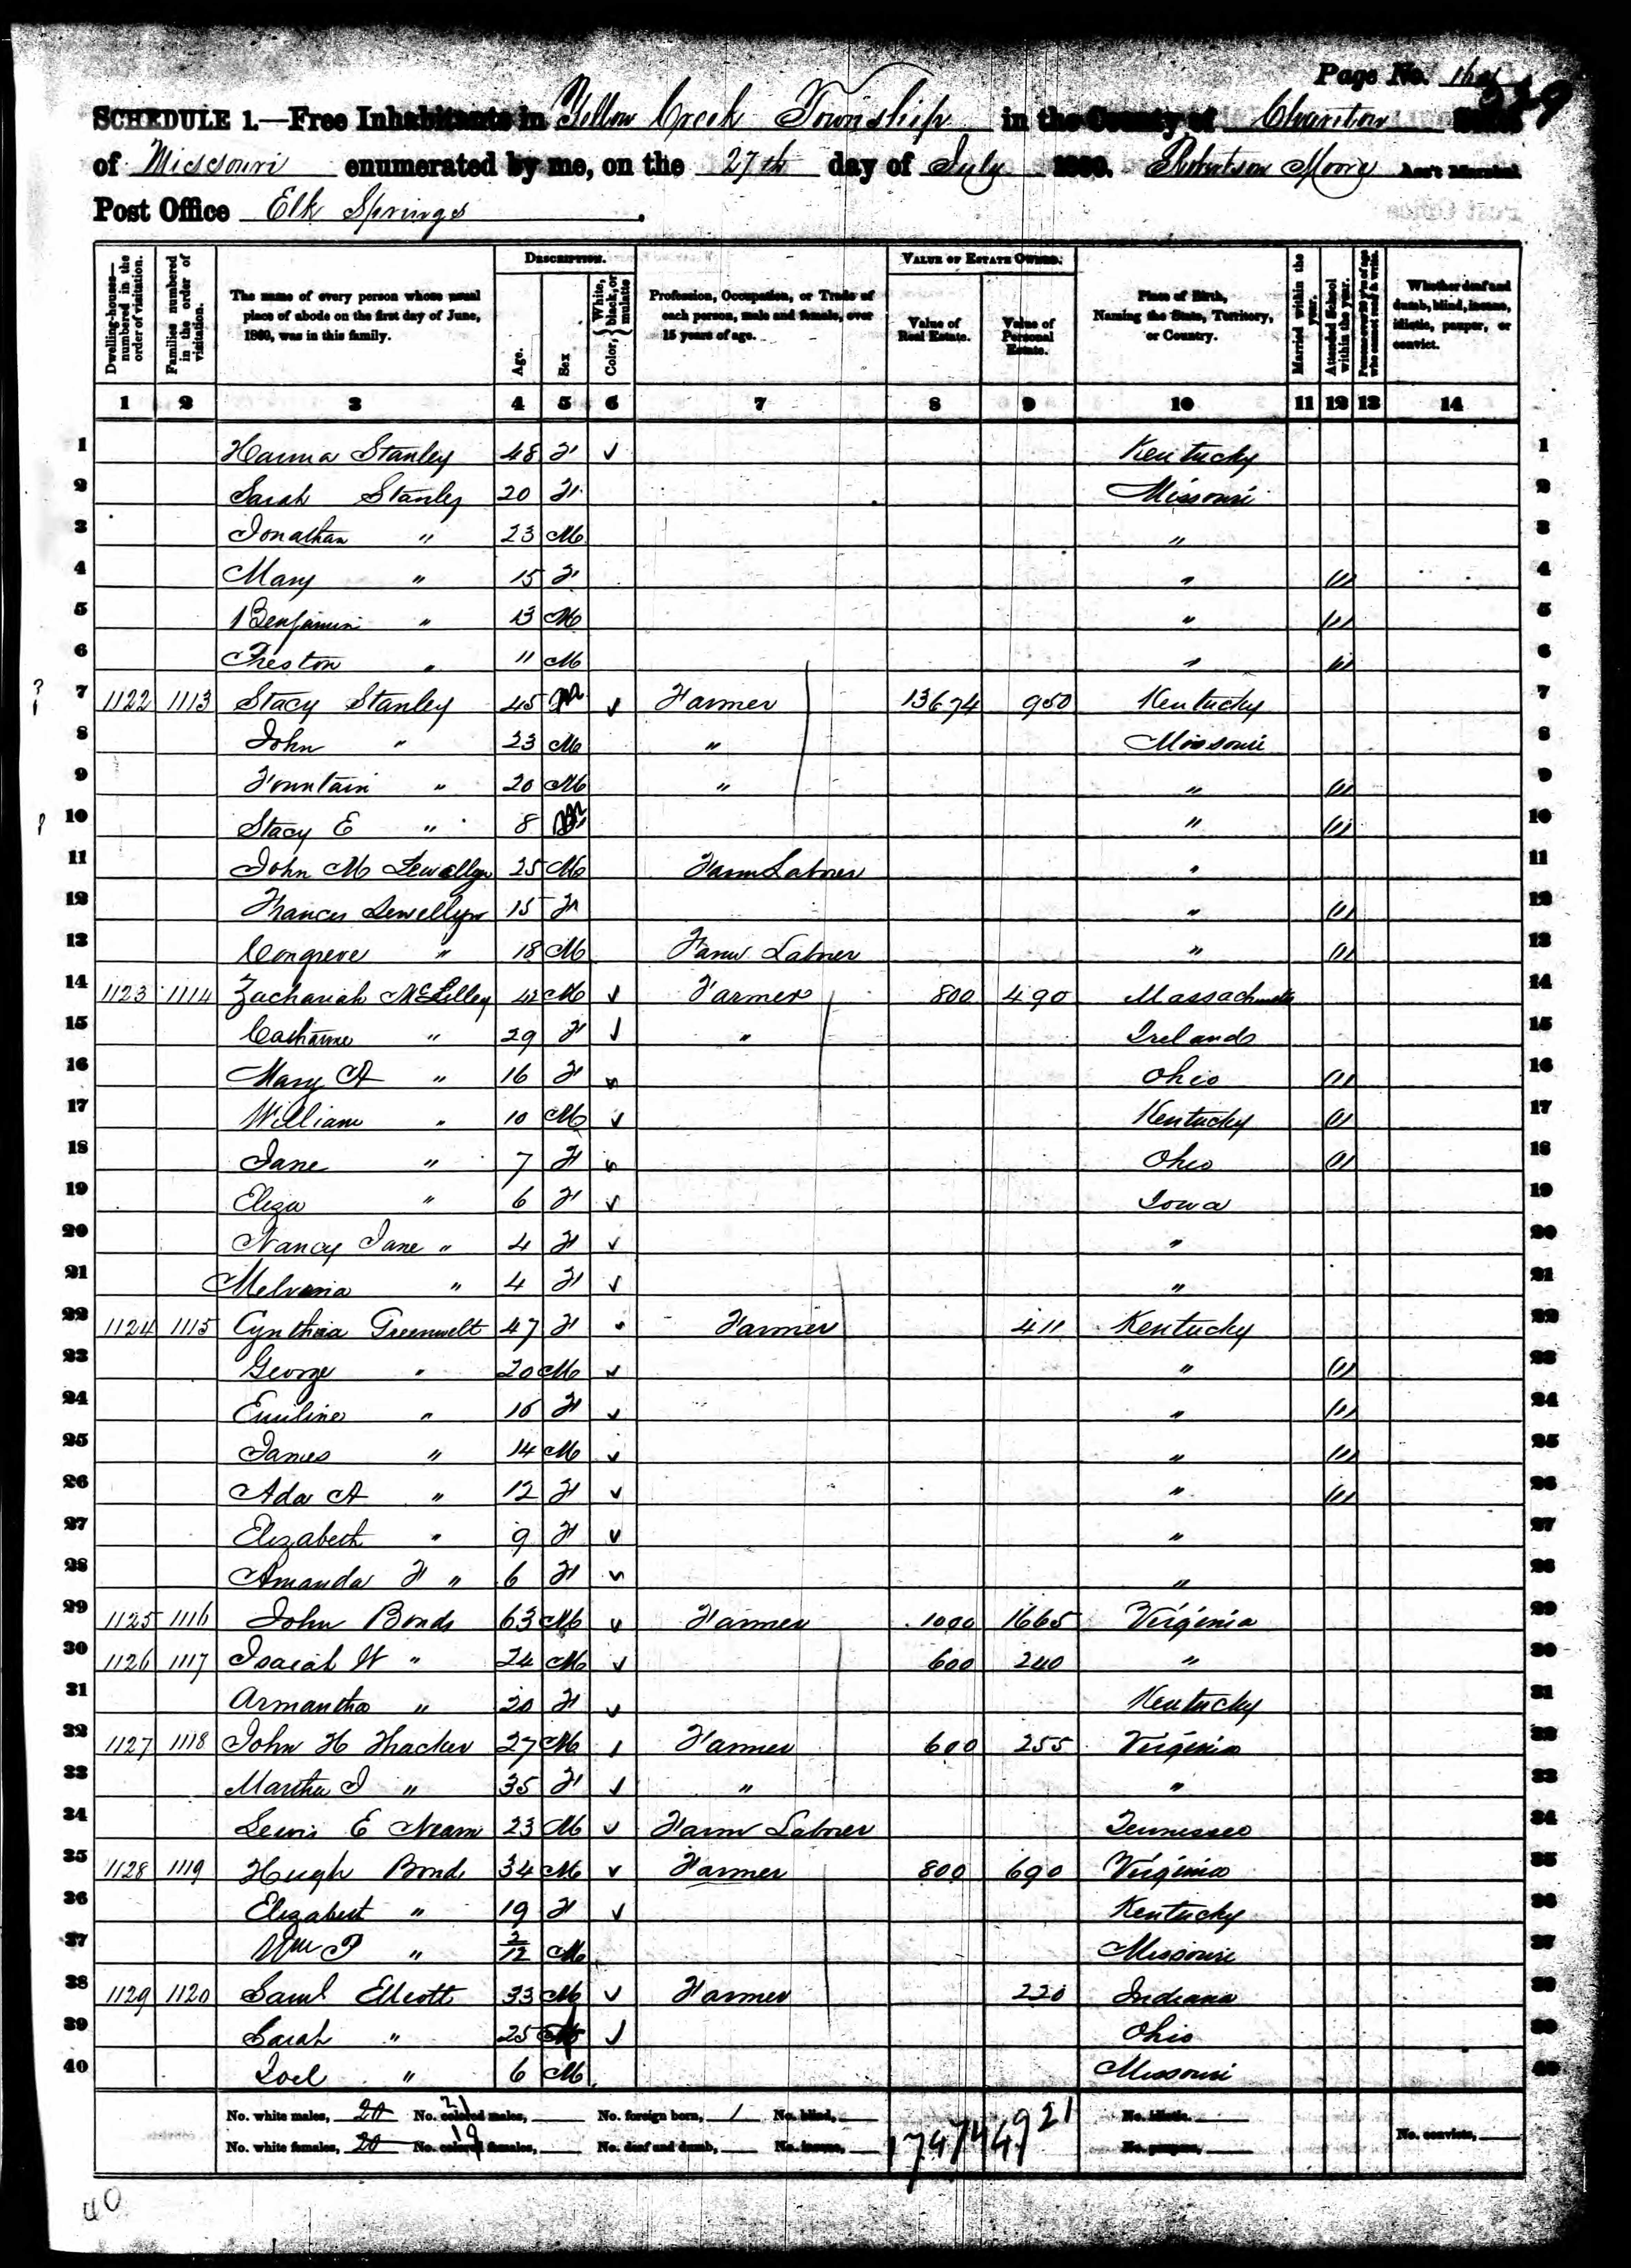 Page No. 164
229
SCHEDULE 1.—Free Inhabitants in Yellow Creek Township in the County of Chariton State
of Missouri enumerated by me, on the 27th day of July 1860. Robertson Moore Ass't Marshal
Post Office Elk Springs.
Dwelling-houses—numbered in the order of visitation.
Families numbered in the order of visitation.
The name of every person whose usual place of abode on the first day of June, 1860, was in this family.
DESCRIPTION.
Age.
Sex
Color, { White, black, or mulatto
Profession, Occupation, or Trade of each person, male and female, over 15 years of age.
VALUE OF ESTATE OWNED.
Value of Real Estate.
Value of Personal Estate.
Place of Birth, Naming the State, Territory, or Country.
Married within the year.
Attended School within the year.
Persons over 20 y'rs of age who cannot read & write.
Whether deaf and dumb, blind, insane, idiotic, pauper, or convict.
1 2 3 4 5 6 7 8 9 10 11 12 13 14
1 Hanna Stanley 48 F ✓ Kentucky 1
2 Sarah Stanley 20 F Missouri 2
3 Jonathan " 23 M " 3
4 Mary " 15 F " 4
5 Benjamin " 13 M " 5
6 Preston " 11 M " 6
7 1122 1113 Stacy Stanley 45 m ✓ Farmer 13674 950 Kentucky 7
8 John " 23 M " Missouri 8
9 Fountain " 20 M " " 9
10 Stacy E " 8 m " 10
11 John M Lewellyn 25 M Farm Laborer " 11
12 Frances Lewellyn 15 F " 12
13 Congreve " 18 M Farm Laborer " 13
14 1123 1114 Zachariah McLilley 42 M ✓ Farmer 800 490 Massachusetts 14
15 Catharine " 29 F ✓ " Ireland 15
16 Mary A " 16 F ✓ Ohio 16
17 William " 10 M ✓ Kentucky 17
18 Jane " 7 F ✓ Ohio 18
19 Eliza " 6 F ✓ Iowa 19
20 Nancy Jane " 4 F ✓ " 20
21 Melvina " 4 F ✓ " 21
22 1124 1115 Cynthia Greenwelt 47 F ✓ Farmer 411 Kentucky 22
23 George " 20 M ✓ " 23
24 Emiline " 16 F ✓ " 24
25 James " 14 M ✓ " 25
26 Ada A " 12 F ✓ " 26
27 Elizabeth " 9 F ✓ " 27
28 Amanda F " 6 F ✓ " 28
29 1125 1116 John Bonds 63 M ✓ Farmer 1000 1665 Virginia 29
30 1126 1117 Isaiah W " 24 M ✓ 600 240 " 30
31 Armantha " 20 F ✓ Kentucky 31
32 1127 1118 John H Thacker 27 M ✓ Farmer 600 255 Virginia 32
33 Martha J " 35 F ✓ " " 33
34 Lewis E 23 M ✓ Farm Laborer Tennessee 34
35 1128 1119 Hugh Bond 34 M ✓ Farmer 800 690 Virginia 35
36 Elizabeth " 19 F ✓ Kentucky 36
37 Wm P " 2/12 M Missouri 37
38 1129 1120 Saml Elliott 33 M ✓ Farmer 220 Indiana 38
39 Sarah " 25 f ✓ Ohio 39
40 Joel " 6 M Missouri 40
No. white males, 20 21 No. colored males, No. foreign born, 1 No. blind, No. idiotic.
No. white females, 20 19 No. colored females, No. deaf and dumb, No. insane, 17474 4921 No. paupers, No. convicts,
40